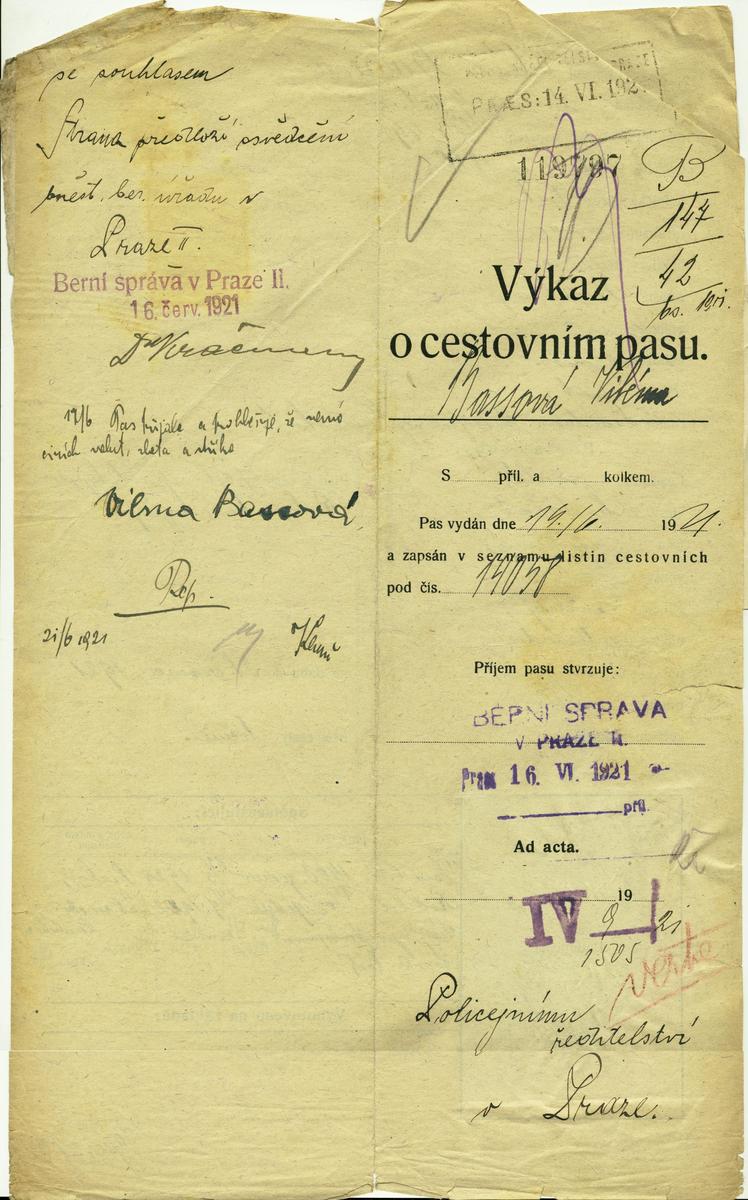 se souhlasem
Strana předloží osvědčení
běst. ber. úřadu v
Praze II.
Berní správa v Praze II.
16. červ. 1921
19/6 Pas přijala a prohlašuje, že nemá
cizích valut, zlata a
Vilma Bassová
Rep.
21/6 1921
PRAES: 14. VI. 192
119797
B
147
42
Výkaz
o cestovním pasu.
Bassová Viléma
S příl. a kolkem.
Pas vydán dne 19./6. 1921.
a zapsán v seznamu listin cestovních
pod čís. 14038
Příjem pasu stvrzuje:
BERNÍ SPRAVA
V PRAZE II.
Praes 16. VI. 1921
příl.
Ad acta.
19
IV 9 21
1505
verte
Policejnímu
ředitelství
v Praze.